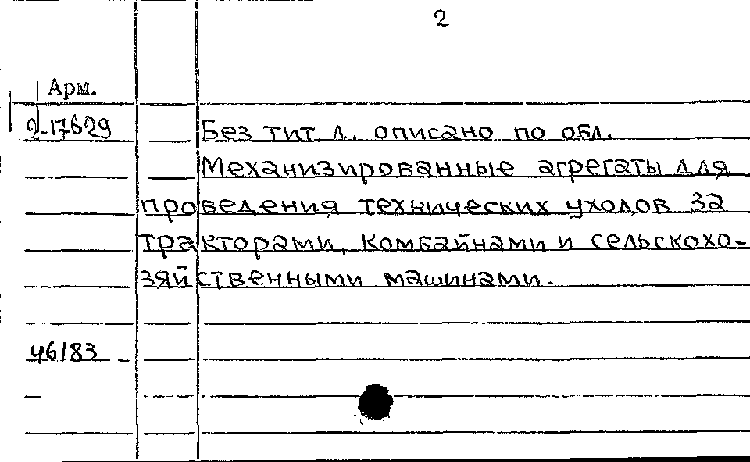 2
Арм.
2-17629
Без тит л. описано по обл.
Механизированные агрегаты для
проведения технических уходов за
тракторами, комбайнами и сельскохо-
зяйственными машинами.
46183